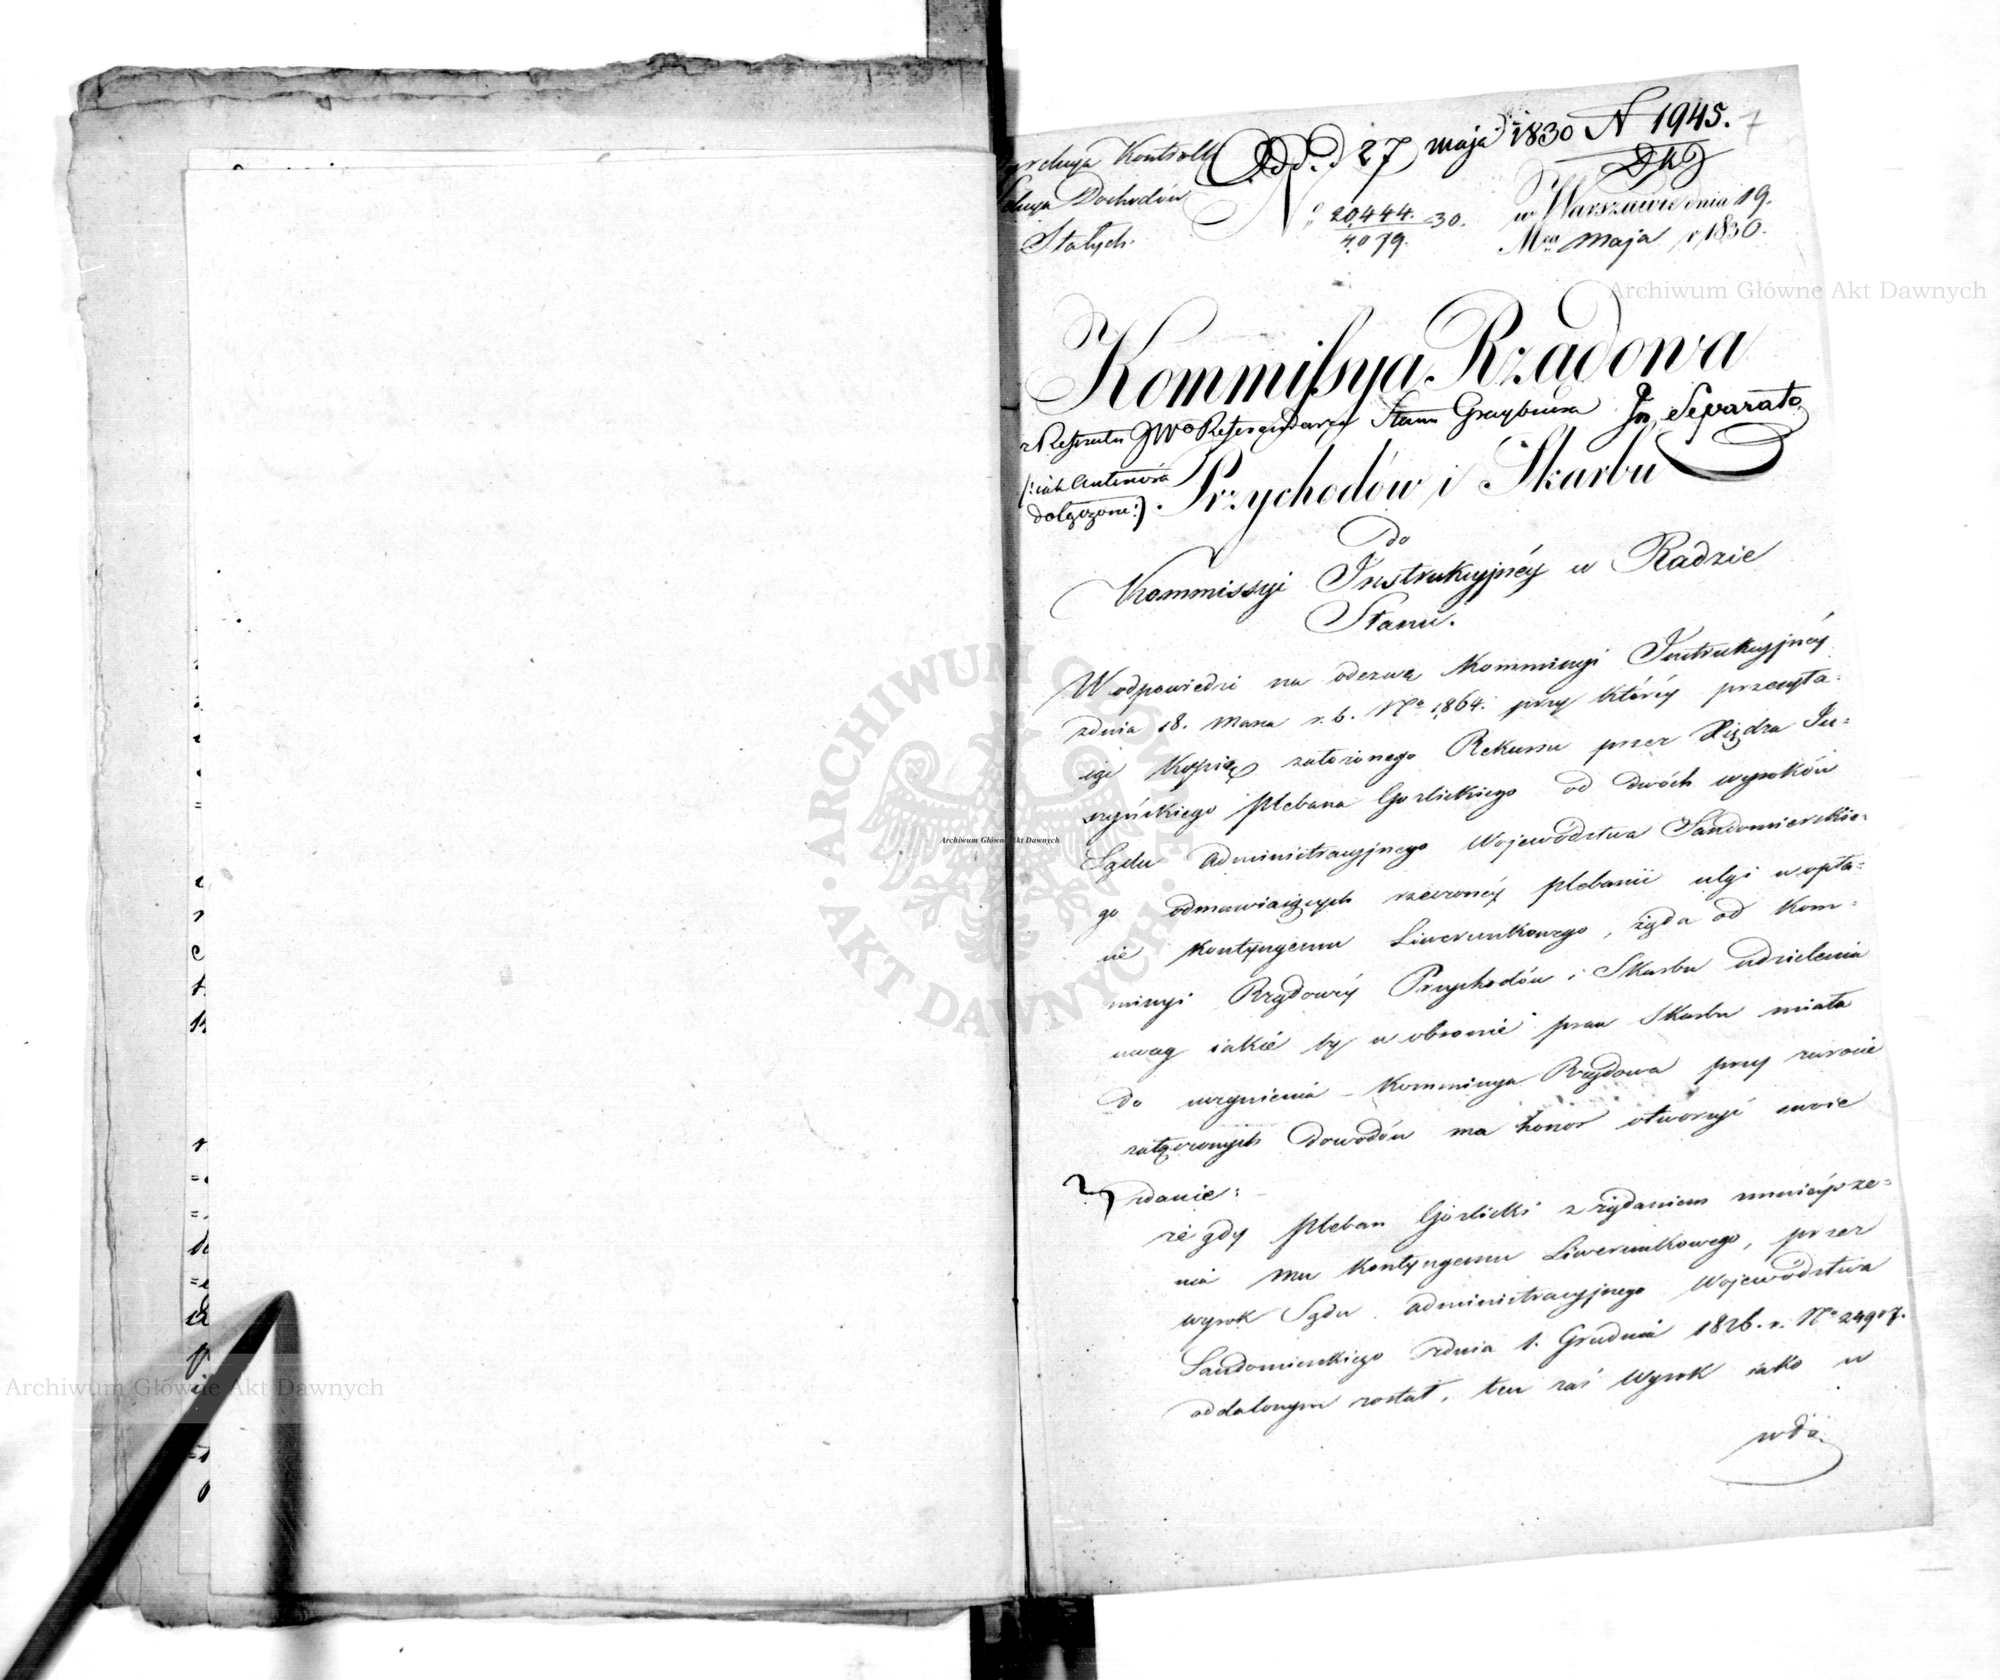 Kontroll
Dochodów
Stałych
Odd. 27 maja 1830 N 1945.
7
N° 20,444./4079. 30.
w Warszawie dnia 19.
Mca maja r 1830.
Kommissya Rządowa
z Referatu JWo Referendarza Stanu In Separato
(: iak
dołączone :)
Przychodów i Skarbu
do
Kommissyi Instrukcyjnéy w Radzie
Stanu.
W odpowiedzi na odezwę Kommissyi Instrukcyjnéy
z dnia 18. Marca r. b. No 1,864. przy któréy przesyła-
iąc Kopię założonego Rekursu przez Xiędza Ju-
szyńskiego Plebana Gorlickiego od dwóch wyroków
Sądu Administracyjnego Województwa Sandomierskie-
go odmawiaiących rzeczonéy plebanii ulgi w opła-
cie kontyngensu Liwerunkowego, żąda od Kom-
missyi Rządowéy Przychodów i Skarbu udzielenia
uwag iakie by w obronie praw Skarbu miała
do uczynienia – Kommissya Rządowa przy zwrocie
załączonych dowodów ma honor otworzyć swoie
zdanie:
że gdy Pleban Gorlicki z żądaniem zmnieysze-
nia mu kontyngensu Liwerunkowego, przez
wyrok Sądu administracyjnego Województwa
Sandomierskiego z dnia 1. Grudnia 1826. r. No 24907.
oddalonym został, ten zaś Wyrok iako w
wda
Archiwum Główne Akt Dawnych
Archiwum Główne Akt Dawnych
Archiwum Główne Akt Dawnych
ARCHIWUM GŁÓWNE AKT DAWNYCH